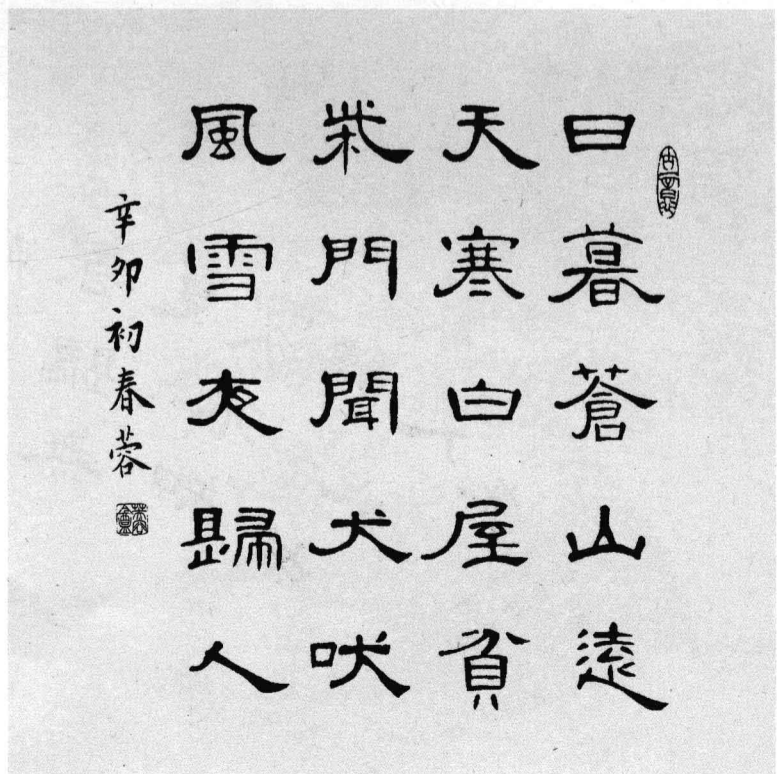 日暮蒼山遠
天寒白屋貧
柴門聞犬吠
風雪夜歸人
辛卯初春蓉